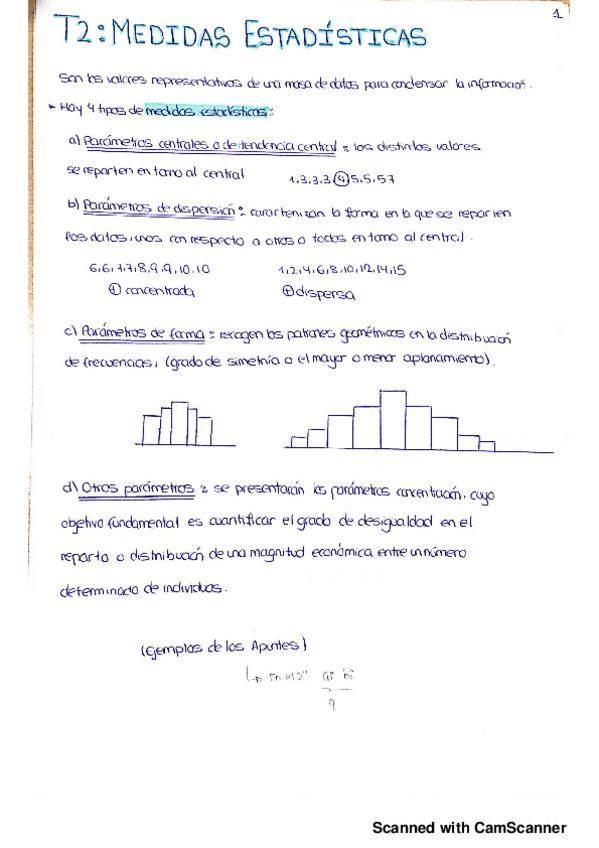 1
T2: MEDIDAS ESTADÍSTICAS
Son los valores representativos de una masa de datos para condensar la información.
Hay 4 tipos de medidas estadísticas:
a) Parámetros centrales o de tendencia central: los distintos valores
se reparten en torno al central 1,3,3,3,4,5,5,5,7
b) Parámetros de dispersión: caracterizan la forma en la que se reparten
los datos, unos con respecto a otros o todos en torno al central.
6,6,7,7,8,9,9,10,10 1,2,4,6,8,10,12,14,15
concentrada dispersa
c) Parámetros de forma: recogen los patrones geométricos en la distribución
de frecuencias, (grado de simetría o el mayor o menor aplanamiento).
d) Otros parámetros: se presentarán los parámetros concentración, cuyo
objetivo fundamental es cuantificar el grado de desigualdad en el
reparto o distribución de una magnitud económica entre un número
determinado de individuos.
(Ejemplos de los Apuntes)
Scanned with CamScanner